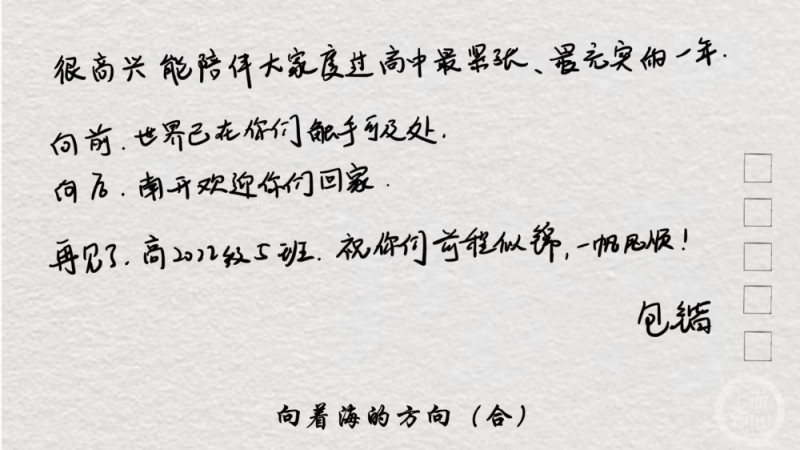 很高兴能陪伴大家度过高中最紧张、最充实的一年.
向前.世界已在你们触手可及处.
向后.南开欢迎你们回家.
再见了.高2022级5班.祝你们前程似锦,一帆风顺!
包
向着海的方向（合）